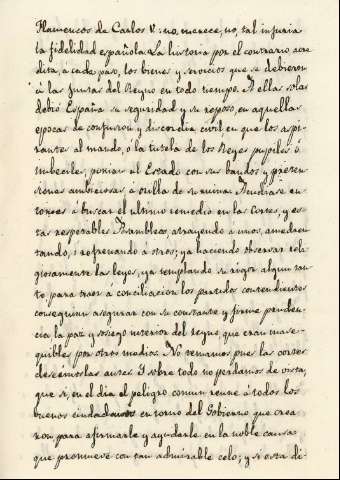 Flamencos de Carlos V: no, merece, no, tal injuria
la fidelidad española. La historia por el contrario acre
dita, a cada paso, los bienes y servicios que se debieron
á las Juntas del Reyno en todo tiempo. A ellas solas
debió España su seguridad y su reposo, en aquellas
epocas de confusion y discordia civil en que los aspi
rantes al mando, ó la tutela de los Reyes pupilos é
imbeciles, ponian al Estado con sus bandos y preten
siones ambiciosas á orilla de su ruina. Acudiase en
tonces á buscar el ultimo remedio en las Cortes, y es
tas respetables Asambleas, atrayendo a unos, amedren
tando, i refrenando a otros; ya haciendo observar reli
giosamente las leyes, ya templando su rigor algun tan
to para traer á conciliacion los partidos contendientes
conseguian asegurar con su constante y firme pruden
cia la paz y sosiego interior del reyno, que eran inase
quibles por otros medios. No temamos pues las cortes
deseémoslas antes. I sobre todo no perdamos de vista,
que si, en el dia el peligro comun reune á todos los
buenos ciudadanos en torno del Gobierno que crea
ron, para afirmarle y ayudarle en la noble causa
que promueve con tan admirable celo; y si esta di-